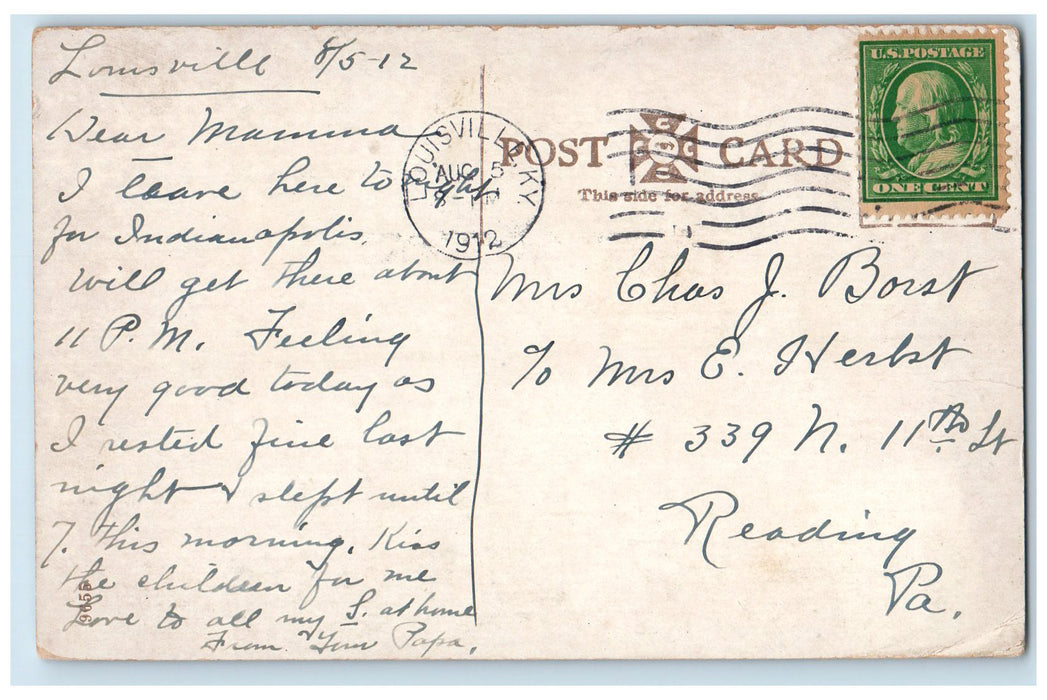 Louisville 8/5-12
Dear Mamma
I leave here to night
for Indianapolis.
will get there about
11 P.M. Feeling
very good today as
I rested fine last
night & slept until
7. this morning. Kiss
the children for me
Love to all my S. at home
From Your Papa.
9655
LOUISVILLE, KY
AUG 5
8-PM
1912
POST CARD
This side for address.
U.S. POSTAGE
ONE CENT
Mrs Chas J. Borst
c/o Mrs E. Herbst
# 339 N. 11th St
Reading
Pa.